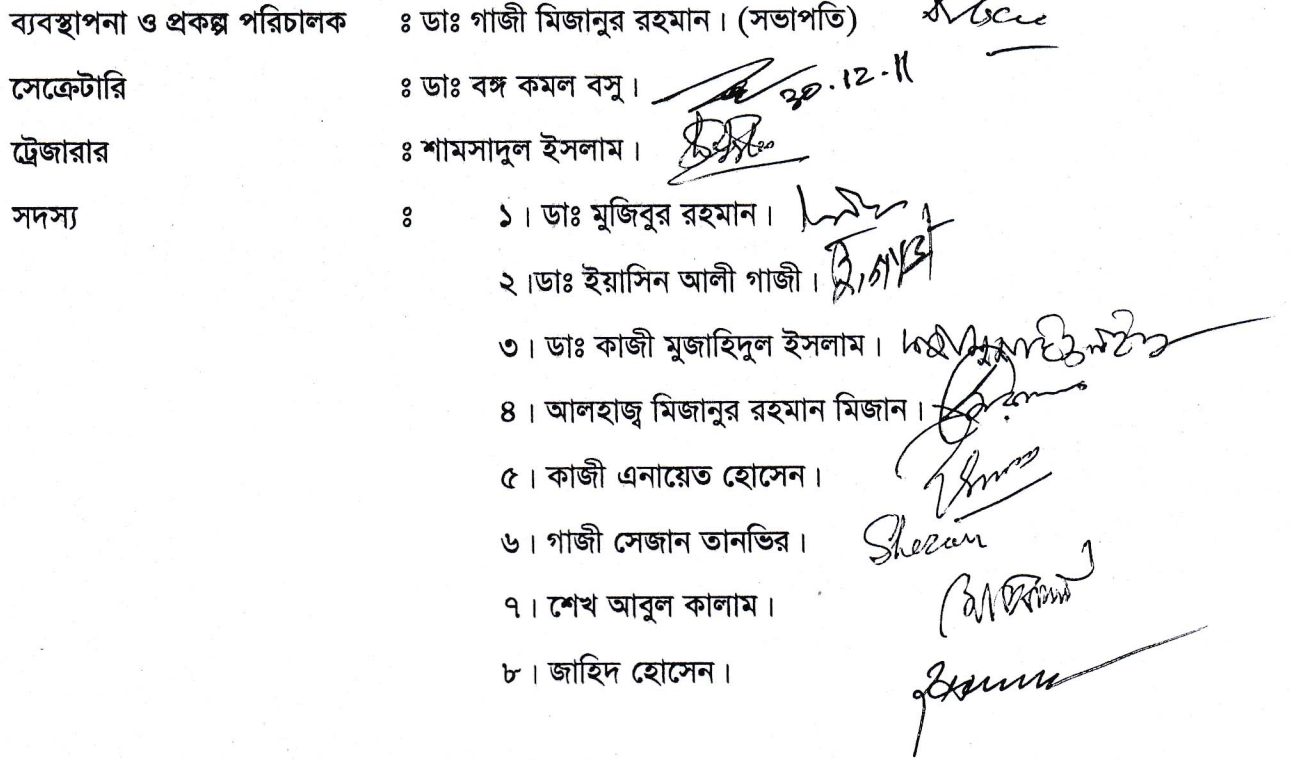 ব্যবস্থাপনা ও প্রকল্প পরিচালক ঃ ডাঃ গাজী মিজানুর রহমান। (সভাপতি)
সেক্রেটারি ঃ ডাঃ বঙ্গ কমল বসু। 30.12.11
ট্রেজারার ঃ শামসাদুল ইসলাম।
সদস্য ঃ ১। ডাঃ মুজিবুর রহমান।
২।ডাঃ ইয়াসিন আলী গাজী।
৩। ডাঃ কাজী মুজাহিদুল ইসলাম।
৪। আলহাজ্ব মিজানুর রহমান মিজান।
৫। কাজী এনায়েত হোসেন।
৬। গাজী সেজান তানভির। Shezan
৭। শেখ আবুল কালাম।
৮। জাহিদ হোসেন।